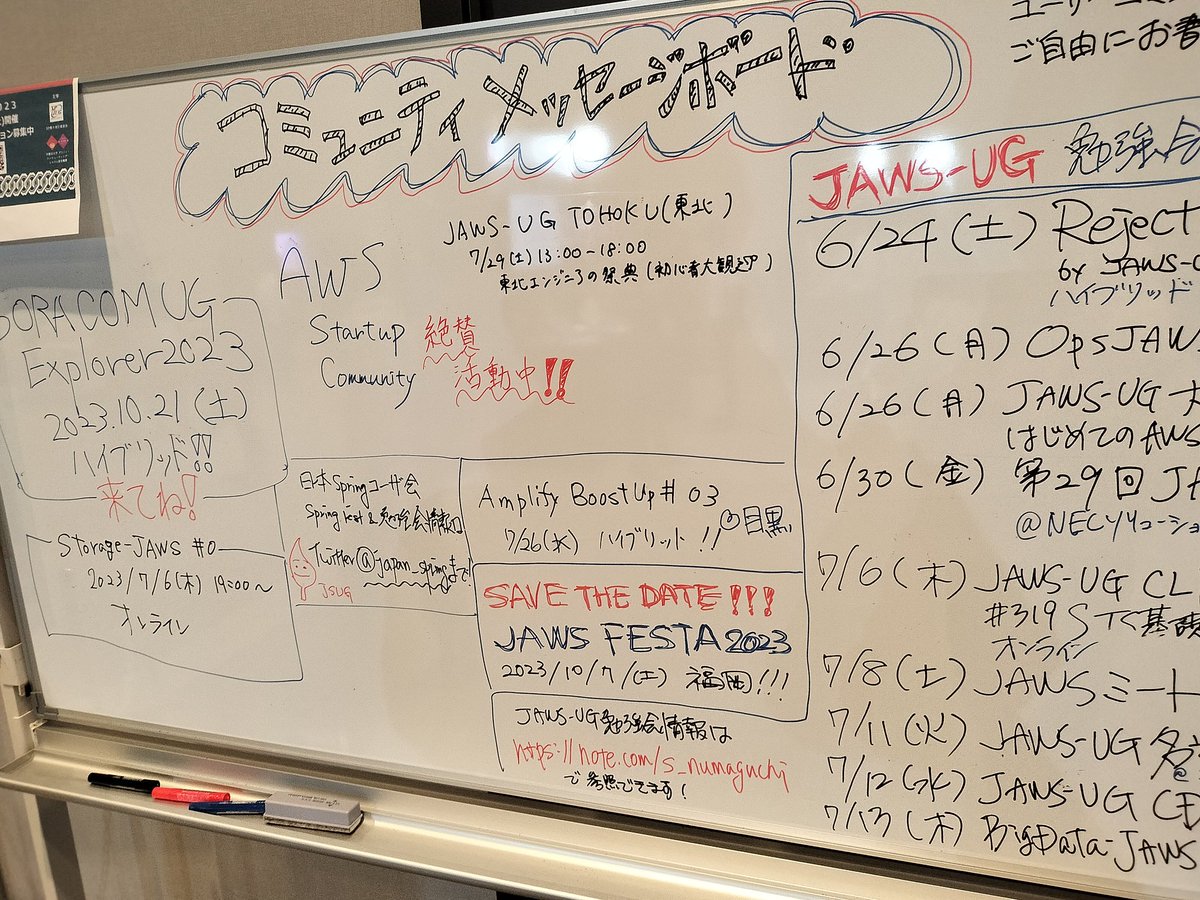 コミュニティメッセージボード
ユーザーコミュ
ご自由にお書
2023
開催
ョン募集中
JAWS-UG TOHOKU(東北)
7/29(土)13:00-18:00
東北エンジニアの祭典(初心者大観迎)
AWS
Startup 絶賛
Community 活動中!!
SORACOM UG
Explorer2023
2023.10.21(土)
ハイブリッド!!
来てね!
Storage-JAWS #0
2023/7/6(木) 19:00〜
オンライン
日本Springユーザ会
Spring Fest & 勉強会情報は
Twitter@japan_springまで!
JSUG
Amplify BoostUp# 03
7/26(水) ハイブリット!! @目黒
SAVE THE DATE!!!
JAWS FESTA2023
2023/10/7/(土) 福岡!!!
JAWS-UG勉強会情報は
https://note.com/s_numaguchi
で参照できます!
JAWS-UG 勉強会
6/24(土) Reject
by JAWS-U
ハイブリッド
6/26(月) OpsJAWS
6/26(月) JAWS-UG
はじめてのAWS
6/30(金) 第29回 JA
@NECソリューショ
7/6(木) JAWS-UG CL
#319 STS基礎
オンライン
7/8(土) JAWSミート
7/11(火) JAWS-UG 名
7/12(水) JAWS-UG
7/13(木) BigData-JAWS